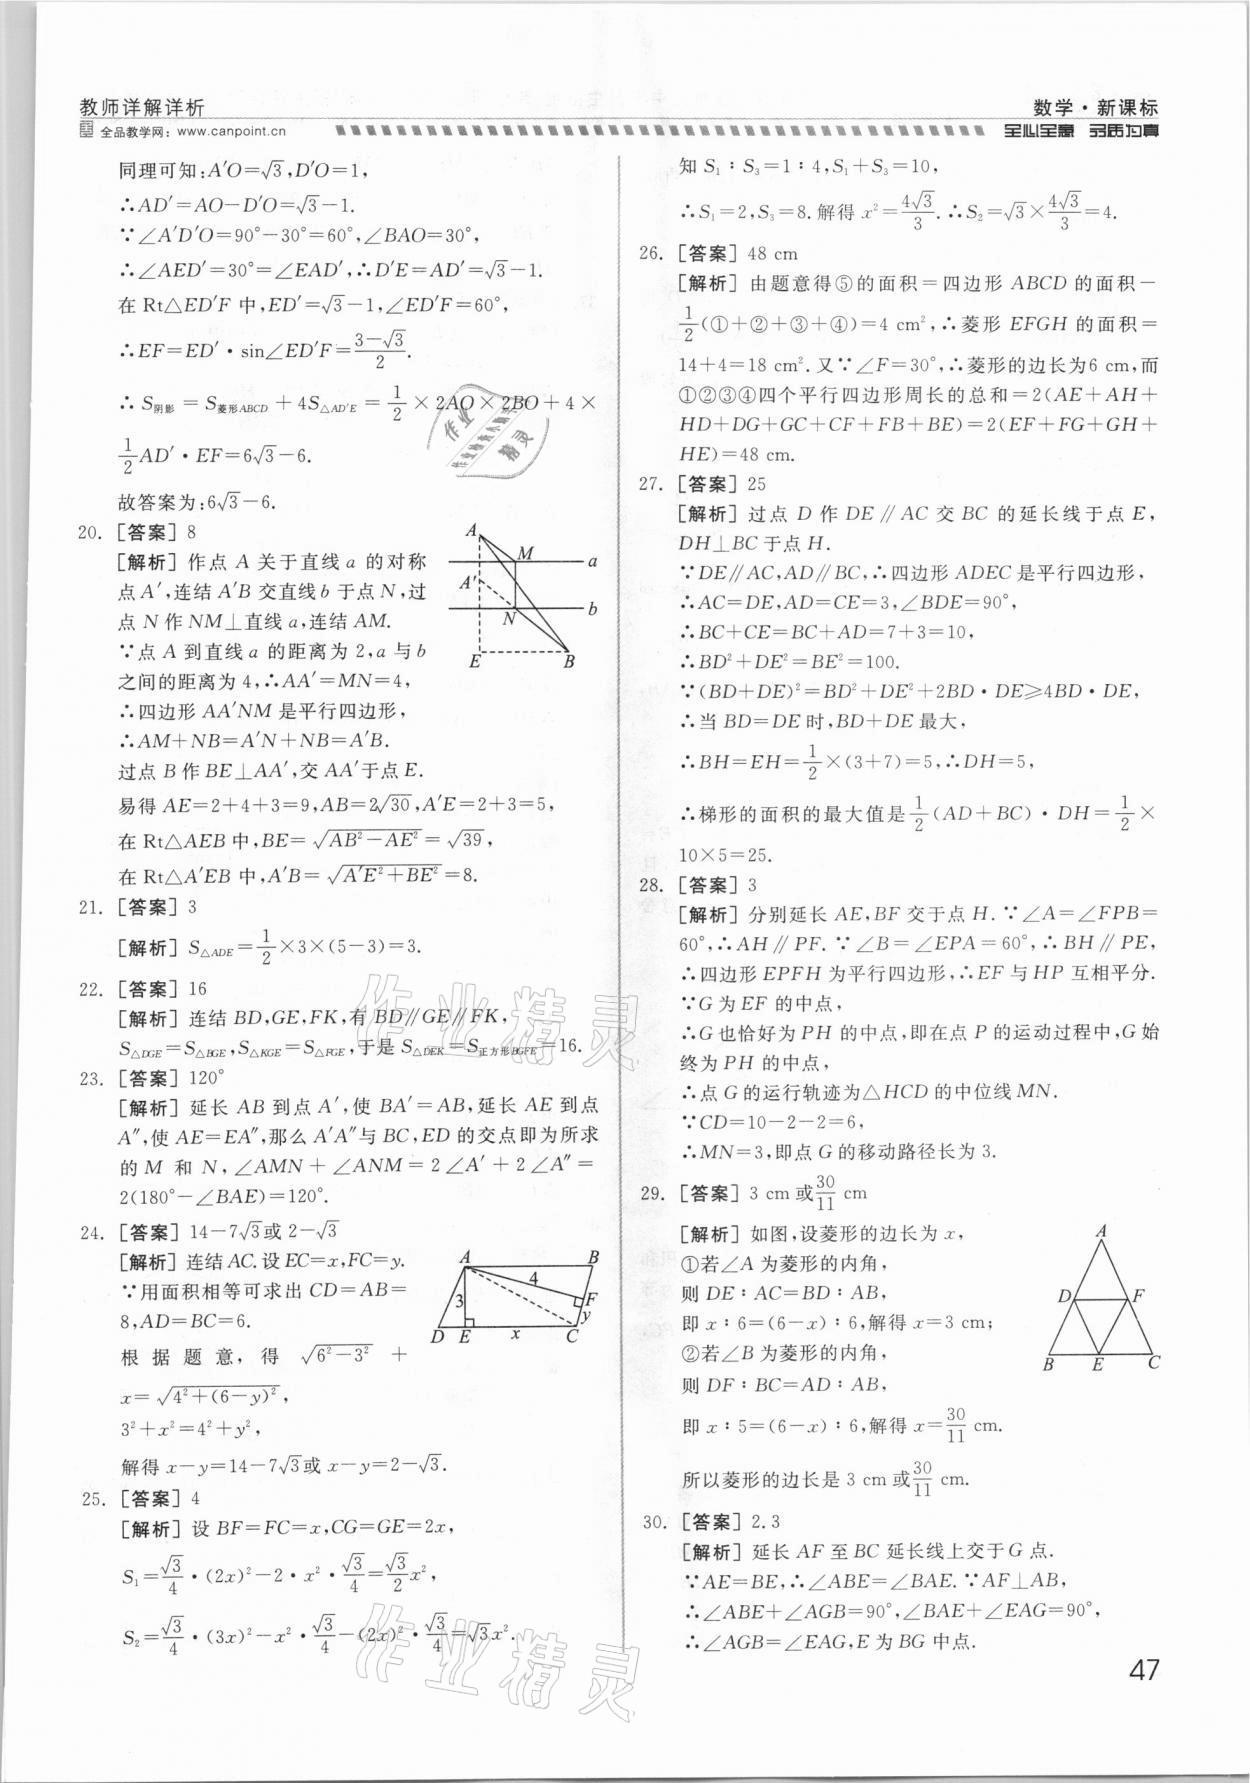 教师详解详析
全品教学网：www.canpoint.cn
数学·新课标
全心全意 品质为真
同理可知:A′O=√3,D′O=1,
∴AD′=AO−D′O=√3−1.
∵∠A′D′O=90°−30°=60°,∠BAO=30°,
∴∠AED′=30°=∠EAD′,∴D′E=AD′=√3−1.
在 Rt△ED′F 中,ED′=√3−1,∠ED′F=60°,
∴EF=ED′·sin∠ED′F=(3−√3)/2.
∴S阴影=S菱形ABCD+4S△AD′E=1/2×2AO×2BO+4×
1/2AD′·EF=6√3−6.
故答案为:6√3−6.
20. [答案] 8
[解析] 作点 A 关于直线 a 的对称
点 A′,连结 A′B 交直线 b 于点 N,过
点 N 作 NM⊥直线 a,连结 AM.
∵点 A 到直线 a 的距离为 2,a 与 b
之间的距离为 4,∴AA′=MN=4,
∴四边形 AA′NM 是平行四边形,
∴AM+NB=A′N+NB=A′B.
过点 B 作 BE⊥AA′,交 AA′于点 E.
易得 AE=2+4+3=9,AB=2√30,A′E=2+3=5,
在 Rt△AEB 中,BE=√(AB²−AE²)=√39,
在 Rt△A′EB 中,A′B=√(A′E²+BE²)=8.
A
M
a
A′
N
b
E
B
21. [答案] 3
[解析] S△ADE=1/2×3×(5−3)=3.
22. [答案] 16
[解析] 连结 BD,GE,FK,有 BD∥GE∥FK,
S△DGE=S△BGE,S△KGE=S△FGE,于是 S△DEK=S正方形BGFE=16.
23. [答案] 120°
[解析] 延长 AB 到点 A′,使 BA′=AB,延长 AE 到点
A″,使 AE=EA″,那么 A′A″与 BC,ED 的交点即为所求
的 M 和 N,∠AMN+∠ANM=2∠A′+2∠A″=
2(180°−∠BAE)=120°.
24. [答案] 14−7√3或 2−√3
[解析] 连结 AC.设 EC=x,FC=y.
∵用面积相等可求出 CD=AB=
8,AD=BC=6.
根据题意,得 √(6²−3²) +
x=√(4²+(6−y)²),
3²+x²=4²+y²,
解得 x−y=14−7√3或 x−y=2−√3.
A
B
4
3
F
y
D
E
x
C
25. [答案] 4
[解析] 设 BF=FC=x,CG=GE=2x,
S₁=√3/4·(2x)²−2·x²·√3/4=√3/2x²,
S₂=√3/4·(3x)²−x²·√3/4−(2x)²·√3/4=√3x².
知 S₁∶S₃=1∶4,S₁+S₃=10,
∴S₁=2,S₃=8.解得 x²=4√3/3.∴S₂=√3×4√3/3=4.
26. [答案] 48 cm
[解析] 由题意得⑤的面积=四边形 ABCD 的面积−
1/2(①+②+③+④)=4 cm²,∴菱形 EFGH 的面积=
14+4=18 cm².又∵∠F=30°,∴菱形的边长为6 cm,而
①②③④四个平行四边形周长的总和=2(AE+AH+
HD+DG+GC+CF+FB+BE)=2(EF+FG+GH+
HE)=48 cm.
27. [答案] 25
[解析] 过点 D 作 DE∥AC 交 BC 的延长线于点 E,
DH⊥BC于点 H.
∵DE∥AC,AD∥BC,∴四边形 ADEC 是平行四边形,
∴AC=DE,AD=CE=3,∠BDE=90°,
∴BC+CE=BC+AD=7+3=10,
∴BD²+DE²=BE²=100.
∵(BD+DE)²=BD²+DE²+2BD·DE⩾4BD·DE,
∴当 BD=DE 时,BD+DE 最大,
∴BH=EH=1/2×(3+7)=5,∴DH=5,
∴梯形的面积的最大值是1/2(AD+BC)·DH=1/2×
10×5=25.
28. [答案] 3
[解析] 分别延长 AE,BF 交于点 H.∵∠A=∠FPB=
60°,∴AH∥PF.∵∠B=∠EPA=60°,∴BH∥PE,
∴四边形 EPFH 为平行四边形,∴EF 与 HP 互相平分.
∵G 为 EF 的中点,
∴G 也恰好为 PH 的中点,即在点 P 的运动过程中,G 始
终为 PH 的中点,
∴点 G 的运行轨迹为△HCD 的中位线 MN.
∵CD=10−2−2=6,
∴MN=3,即点 G 的移动路径长为 3.
29. [答案] 3 cm 或30/11 cm
[解析] 如图,设菱形的边长为 x,
①若∠A 为菱形的内角,
则 DE∶AC=BD∶AB,
即 x∶6=(6−x)∶6,解得 x=3 cm;
②若∠B 为菱形的内角,
则 DF∶BC=AD∶AB,
即 x∶5=(6−x)∶6,解得 x=30/11 cm.
所以菱形的边长是 3 cm 或30/11 cm.
A
D
F
B
E
C
30. [答案] 2.3
[解析] 延长 AF 至 BC 延长线上交于 G 点.
∵AE=BE,∴∠ABE=∠BAE.∵AF⊥AB,
∴∠ABE+∠AGB=90°,∠BAE+∠EAG=90°,
∴∠AGB=∠EAG,E 为 BG 中点.
47
作业精灵
作业精灵
作业
精灵